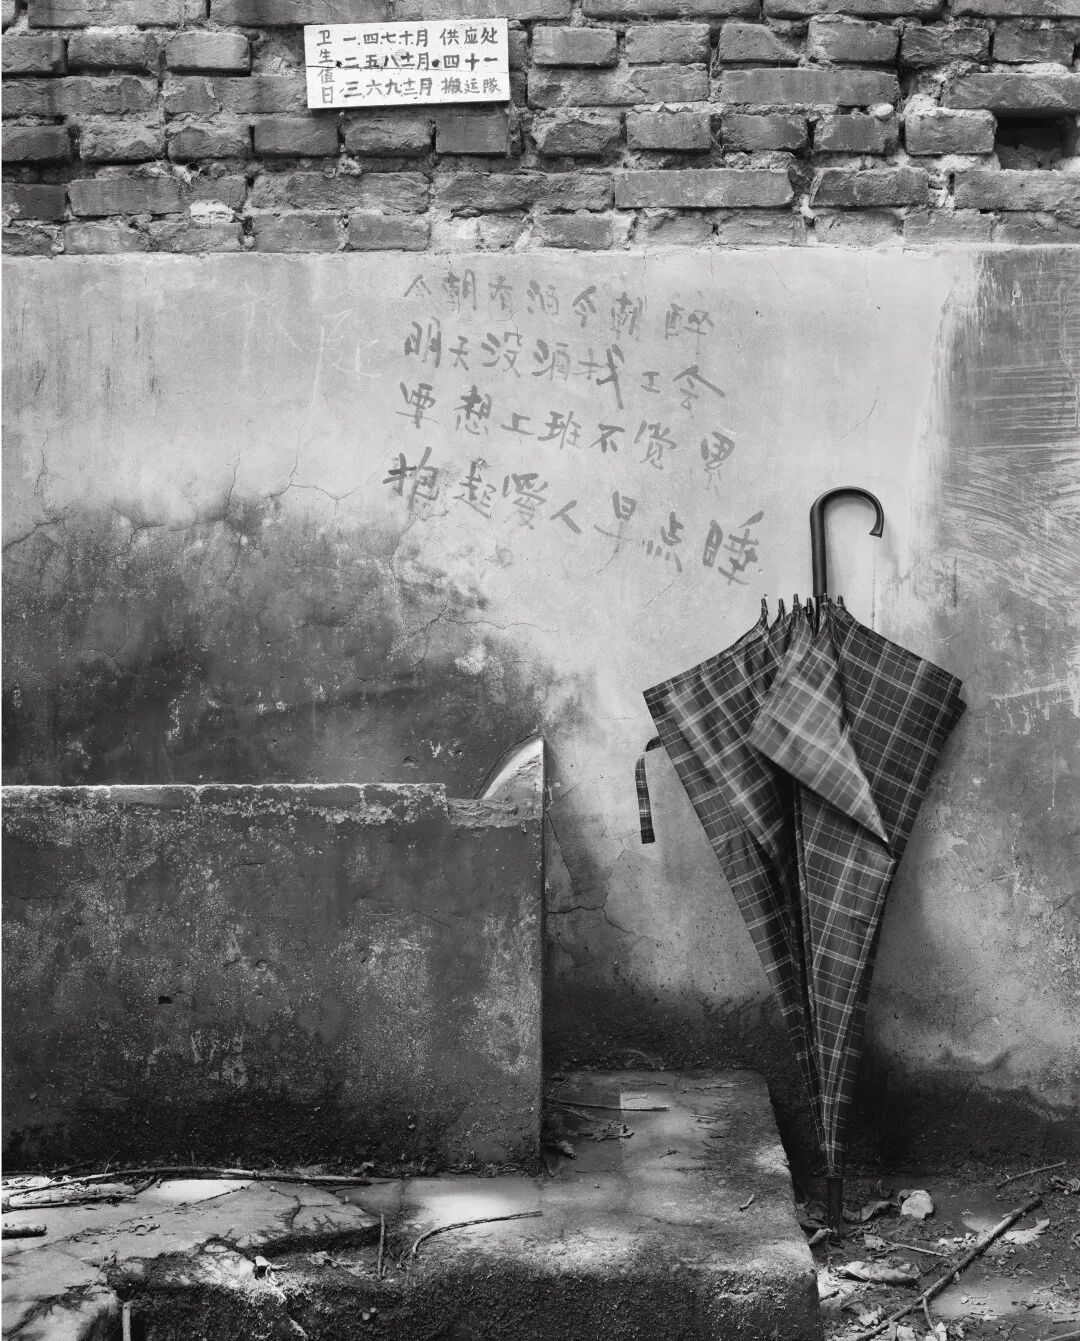 卫生值日
一.四七十月 供应处
二.五八十一月.四十一
三.六九十二月 搬运队
今朝有酒今朝醉
明天没酒找工会
要想上班不觉累
抱起爱人早点睡